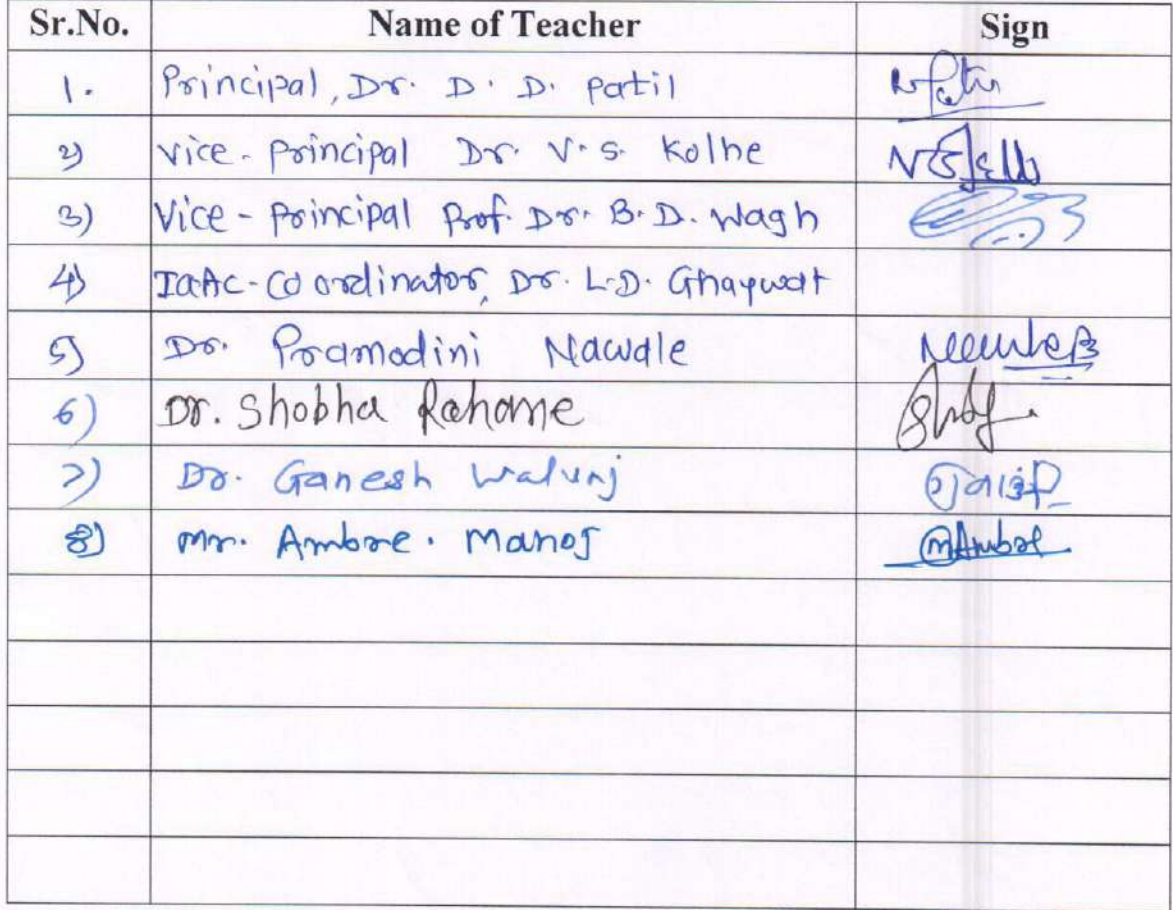 Sr.No. Name of Teacher Sign
1. Principal, Dr. D. D. Patil
2) Vice-Principal Dr. V.S. Kolhe
3) Vice-Principal Prof. Dr. B.D. Wagh
4) IQAC-Coordinator, Dr. L.D. Ghaywat
5) Dr. Pramodini Nawale
6) Dr. Shobha Rahane
7) Dr. Ganesh Walunj
8) Mr. Ambre. Manoj MAmbre